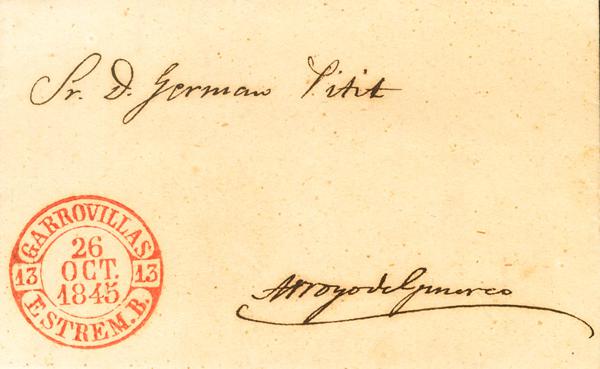 Sr. D. German Pitit
GARROVILLAS
26
13 OCT. 13
1845
ESTREM. B.
Arroyo del Puerco